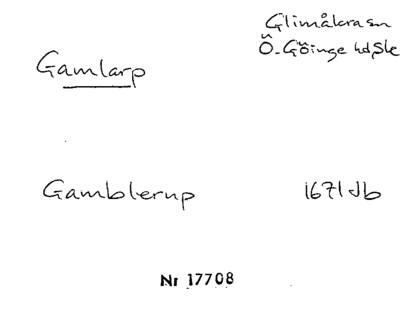 Glimåkra sn
Gamlarp
Ö. Göinge hd, Sk
Gamblerup 1671 Jb
Nr 17708